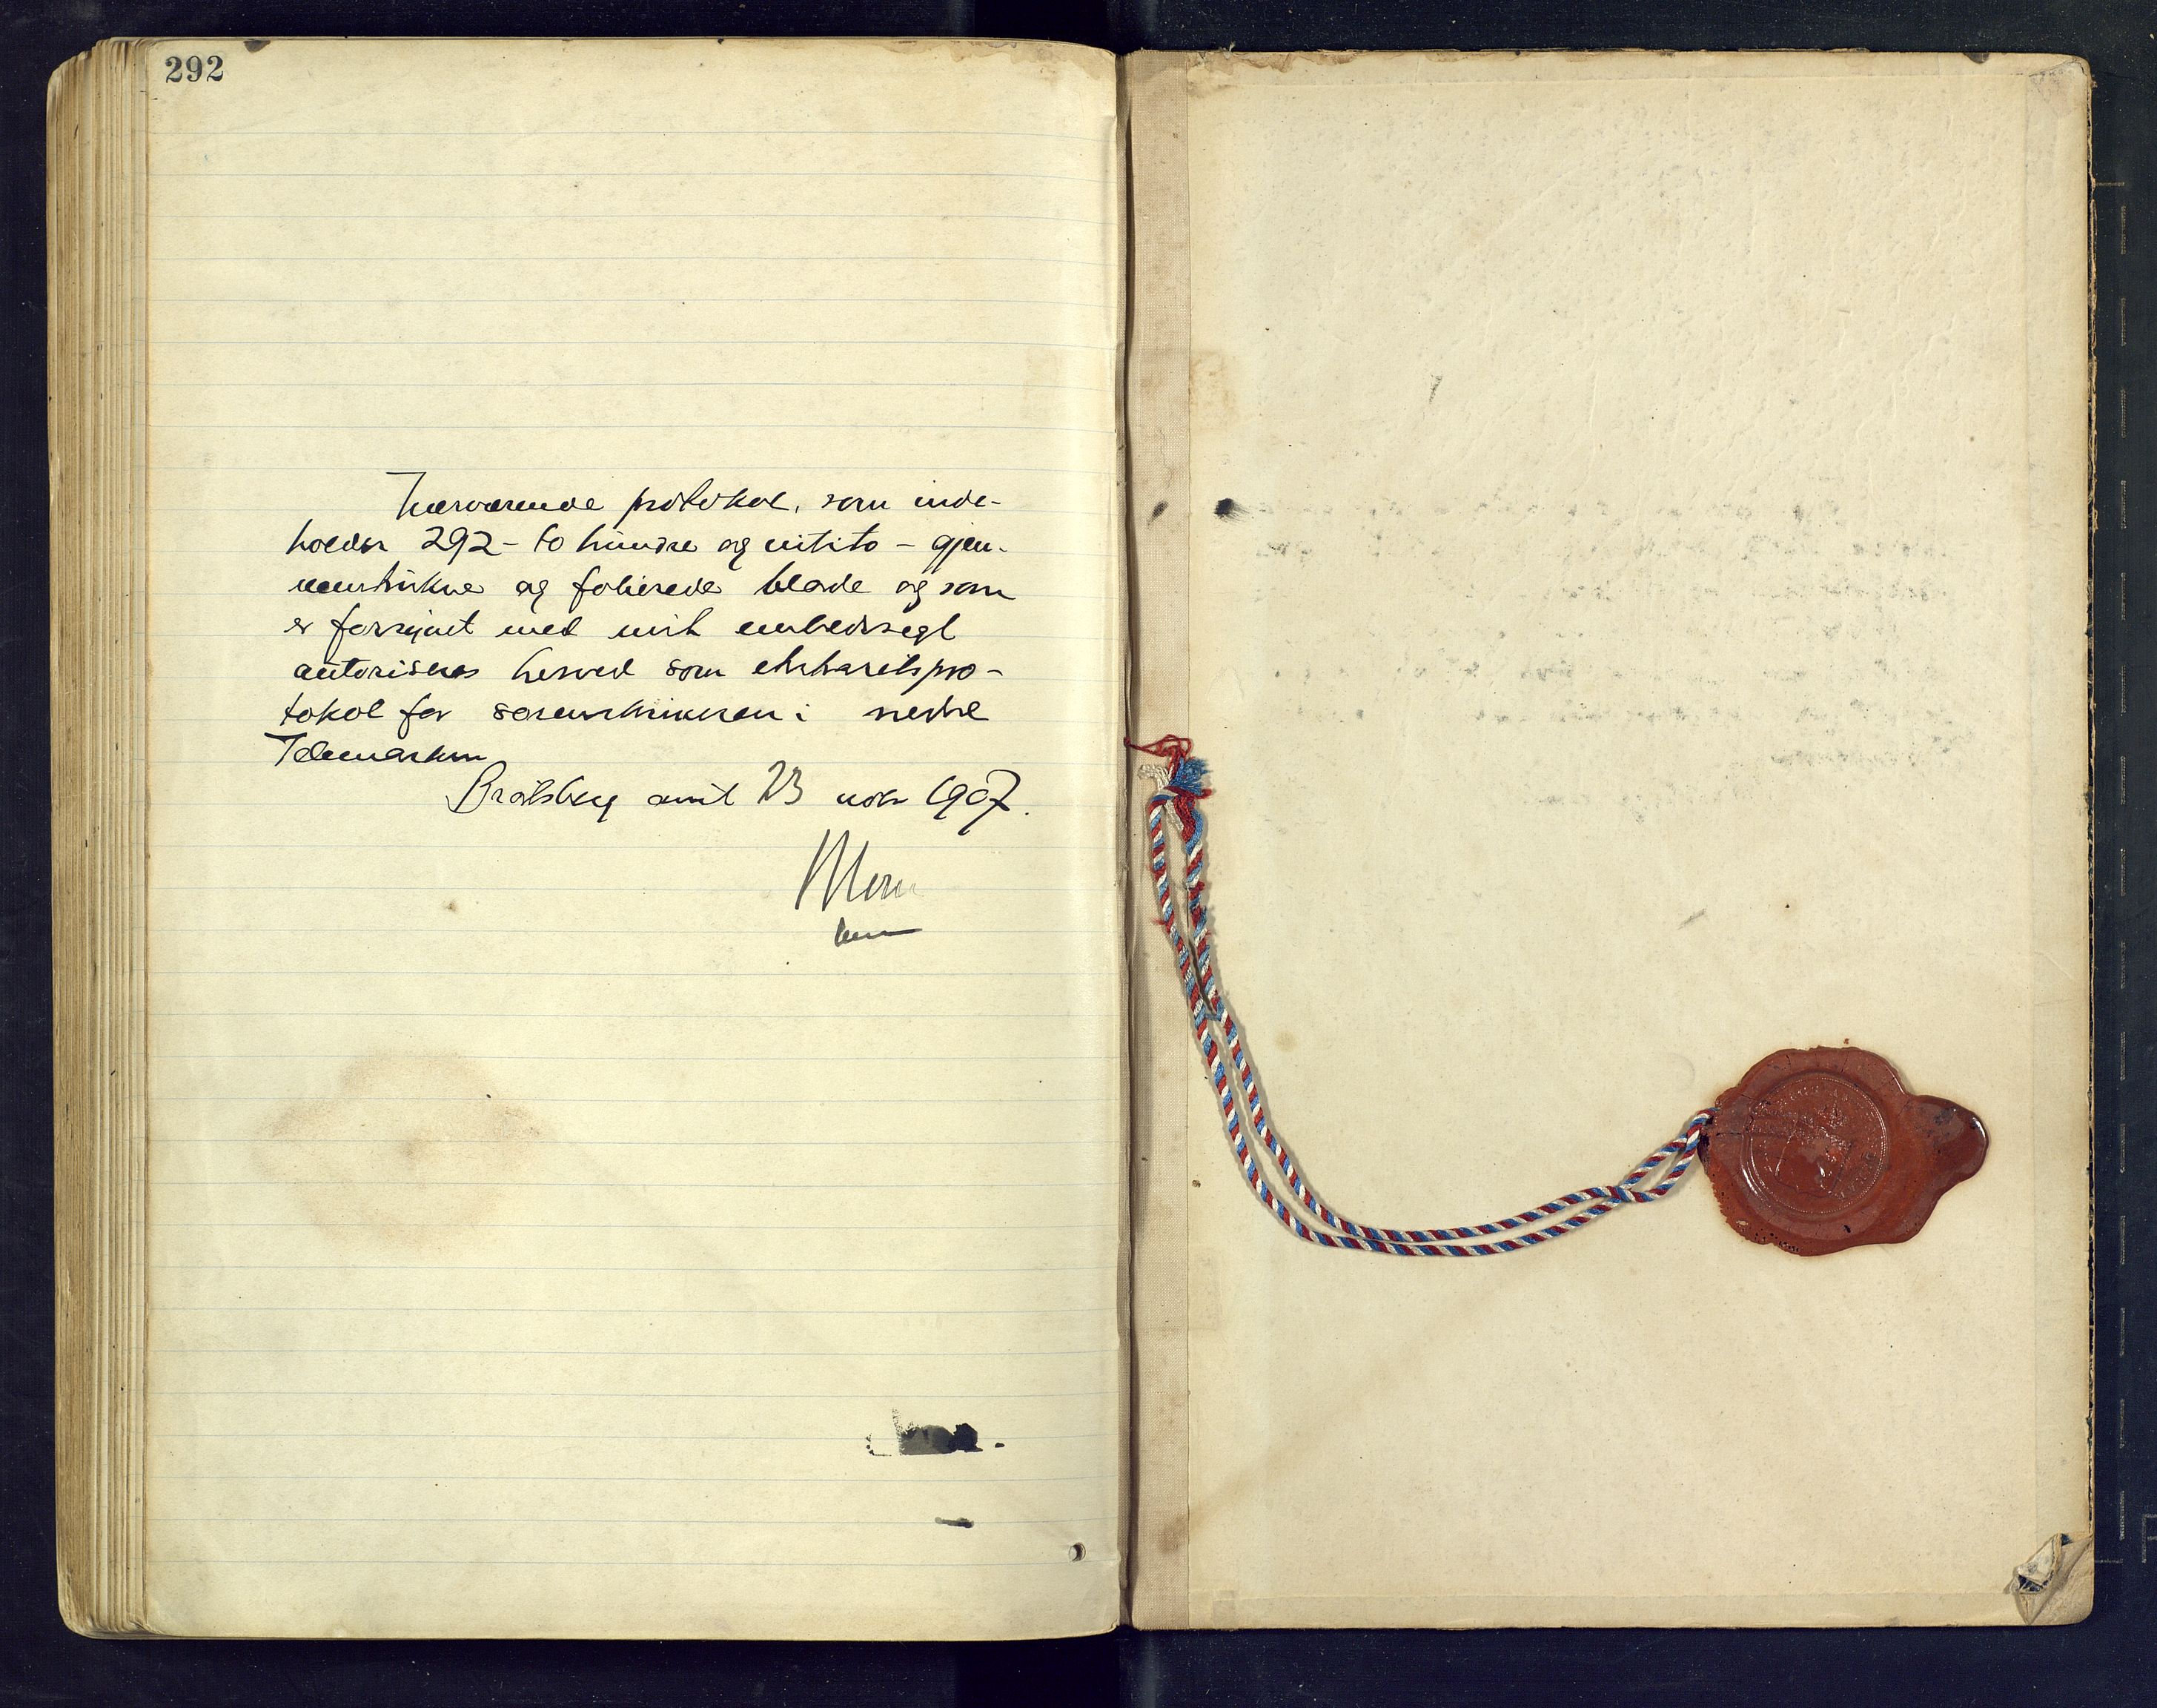 292
Nærværende protokol, som inde-
holder 292 - to hundre og nitito - gjen-
nemtrukne og folierede blade og som
er forsynet med mit embedssegl
autoriseres herved som ekstraretspro-
tokol for sorenskriveren i nedre
Telemarken
Bratsberg amt 23 nov 1907.